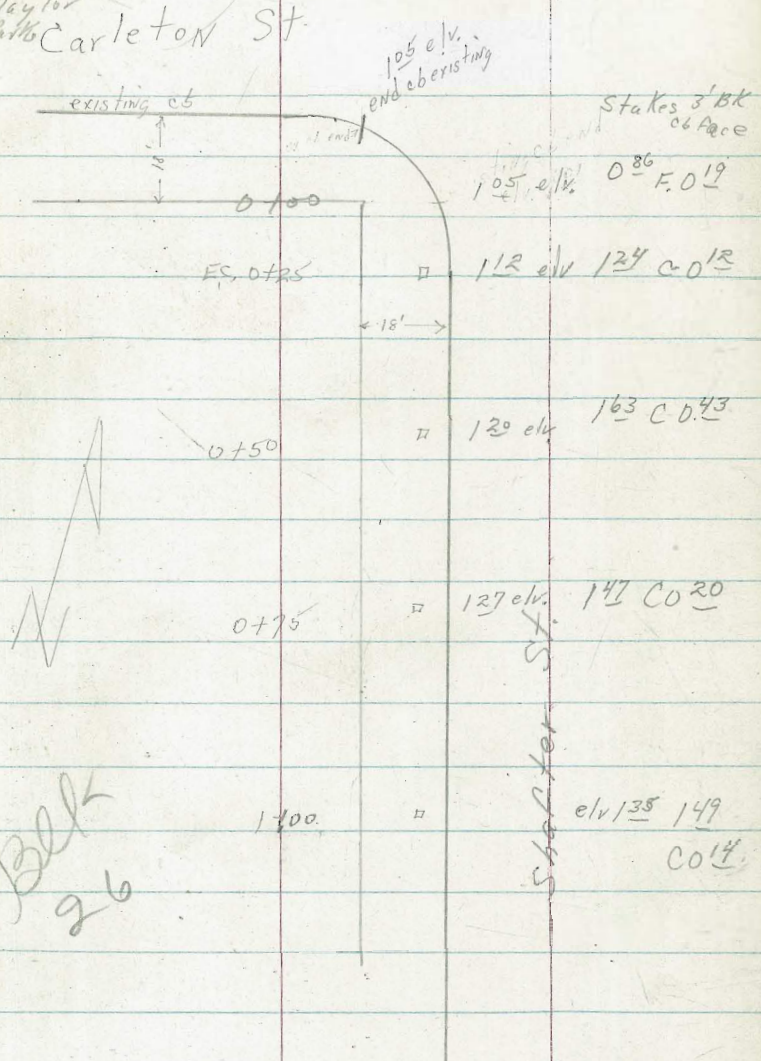 Carleton St.
1 05 elv.
end cb existing
existing cb
Stakes 3' BK
cb face
18'
1 05 elv. 0 86 F. 0 19
0+00
E.S. 0+25 1 12 elv 1 24 C 0 12
18'
0+50 1 20 elv 1 63 C 0.43
0+75 1 27 elv. 1 47 C 0 20
Shafter St.
1+00 elv 1 35 1 49
C 0 14
Blk
26